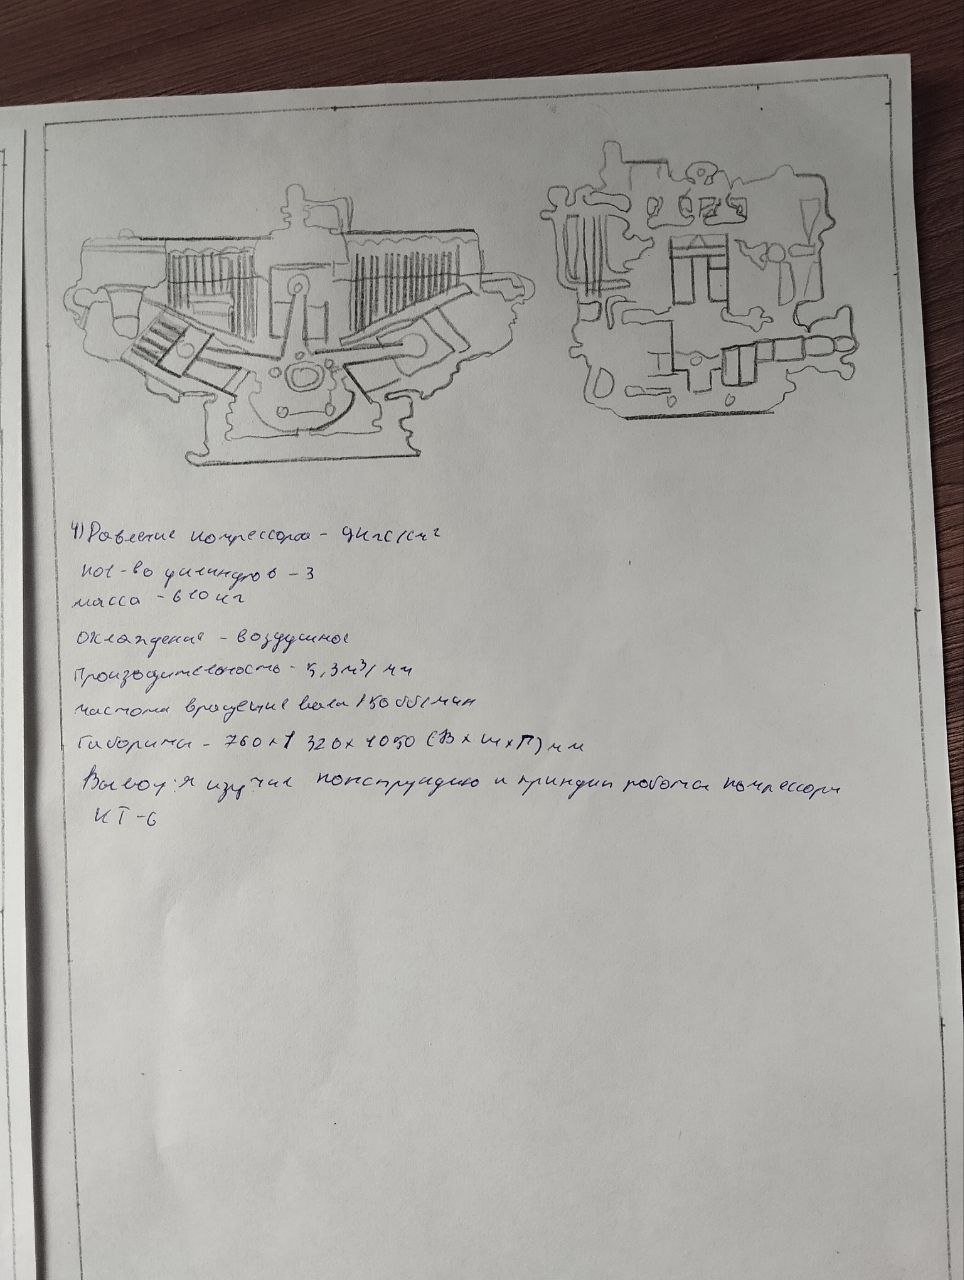 4) Давление компрессора - 9 кгс/см²
кол-во цилиндров - 3
масса - 610 кг
Охлаждение - воздушное
Производительность - 5,3 м³/мин
частота вращение вала 750 об/мин
Габориты - 760 х 1 320 х 1050 (В х ш х Г) мм
Вывод: я изучил конструкцию и принцип работы компрессора
КТ-6